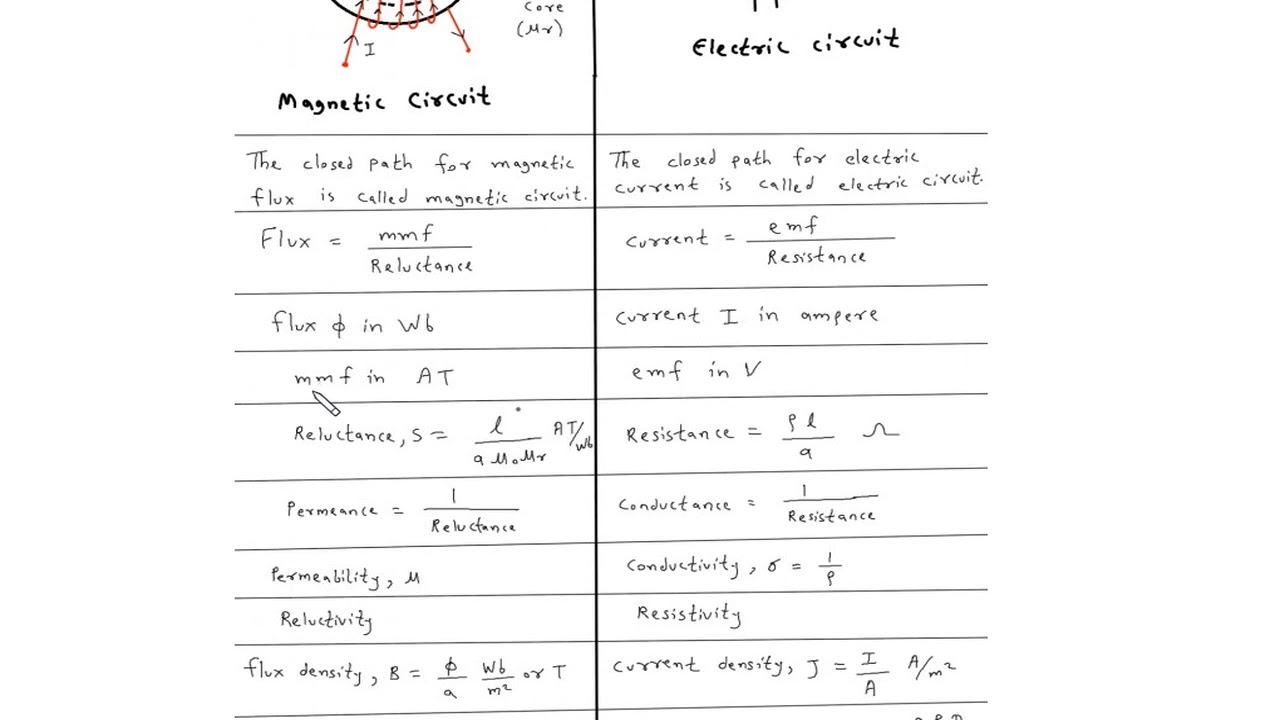 Core
(μr)
I
Electric circuit
Magnetic Circuit
The closed path for magnetic
flux is called magnetic circuit.
The closed path for electric
current is called electric circuit.
Flux = mmf
Reluctance
Current = emf
Resistance
flux ϕ in Wb
Current I in ampere
mmf in AT
emf in V
Reluctance, S = l AT/Wb
a μ₀μr
Resistance = ρl Ω
a
Permeance = 1
Reluctance
Conductance = 1
Resistance
Permeability, μ
Conductivity, σ = 1
ρ
Reluctivity
Resistivity
flux density, B = ϕ Wb or T
a m²
Current density, J = I A/m²
A